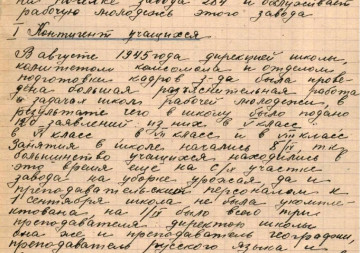 на посёлке завода 284 и обслуживает
рабочую молодежь этого завода
I Контингент учащихся
В августе 1945 года дирекцией школы,
комитетом комсомола и отделом
подготовки кадров з-да была прове-
дена большая разъяснительная работа
о задачах школ рабочей молодежи, в
результате чего в школу было подано
160 заявлений из них в V класс
в VI класс в VII класс и в VIII класс
Занятия в школе начались 8/IX т.к.
большинство учащихся находились в
это время еще на с/х участке
завода на уборке урожая да и
преподавательский персонал к
1 сентября школа не была укомпле-
ктована, на 1/IX было всего три
преподавателя директор школы
она же и преподаватель географии,
преподаватель русского языка и